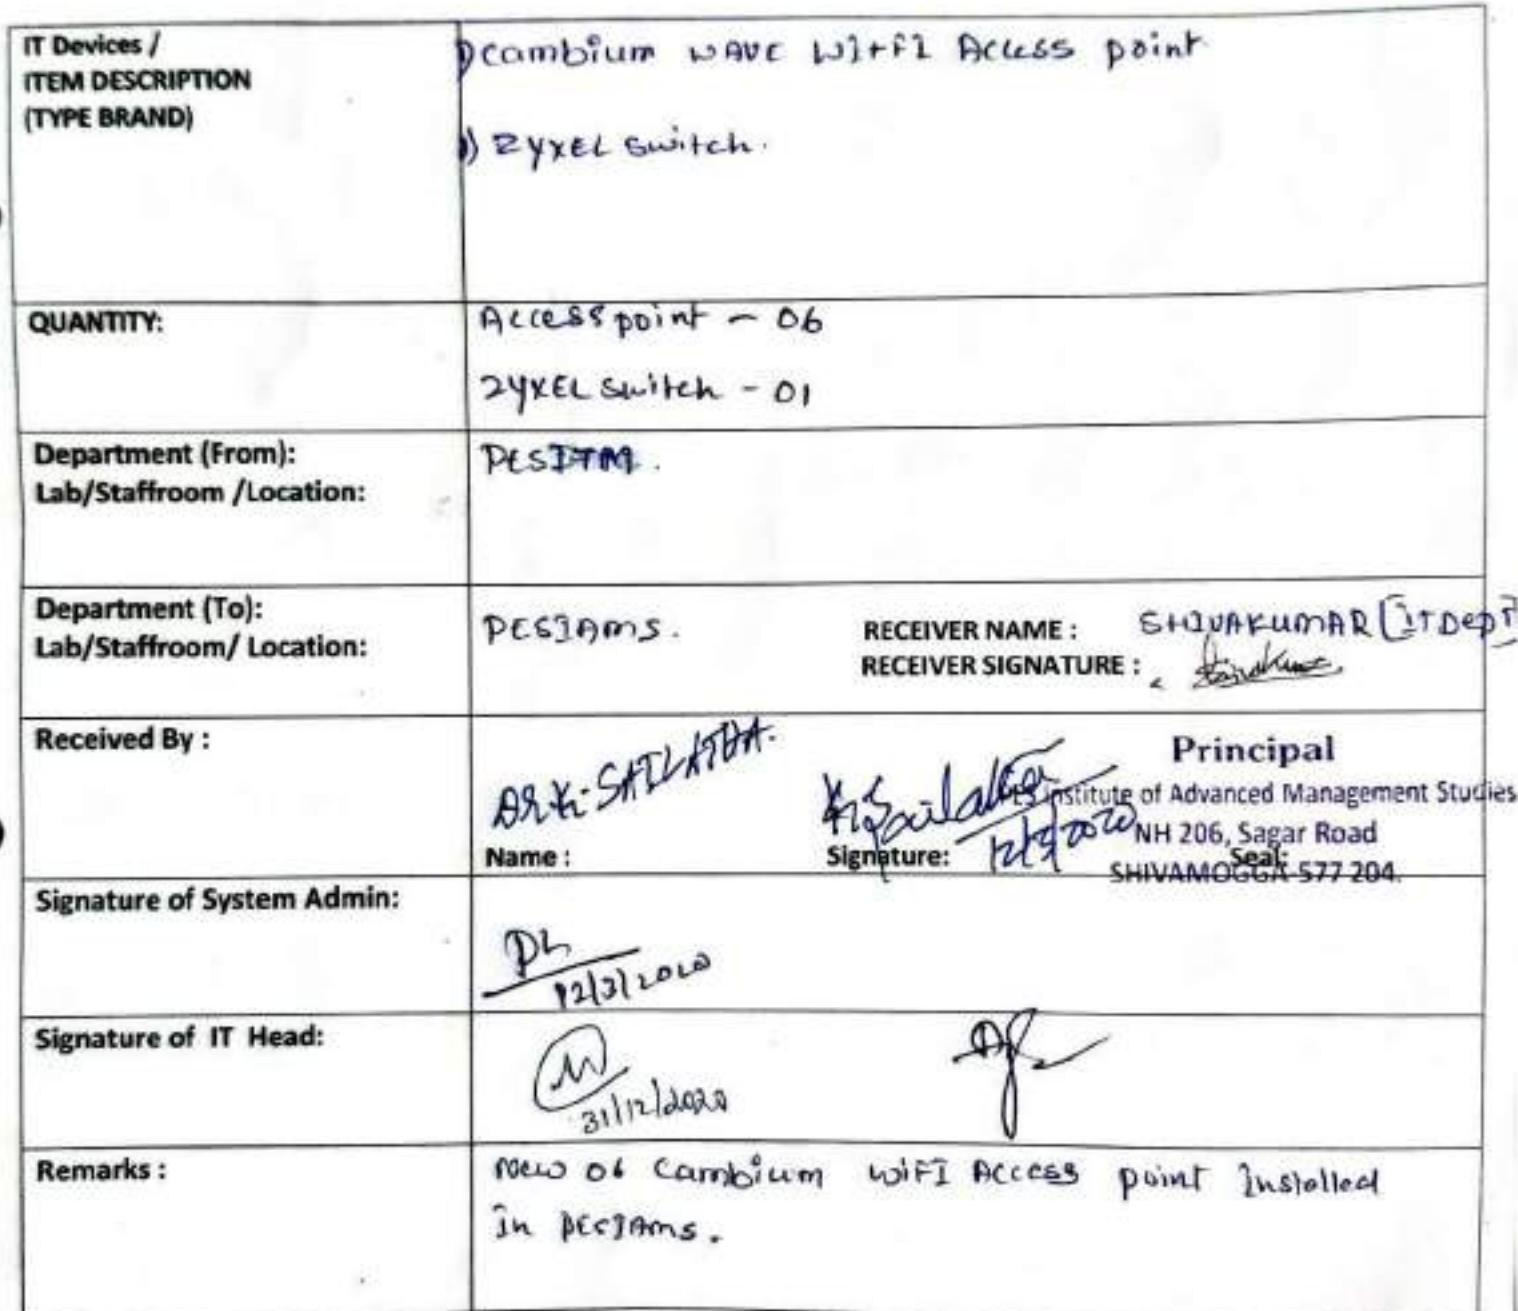 IT Devices /
ITEM DESCRIPTION
(TYPE BRAND)
1) Cambium WAVE WIFI Access point
1) ZYXEL Switch.
QUANTITY:
Access point - 06
ZYXEL Switch - 01
Department (From):
Lab/Staffroom /Location:
PESITM.
Department (To):
Lab/Staffroom/ Location:
PESIAMS.
RECEIVER NAME : SHIVAKUMAR [IT Dept]
RECEIVER SIGNATURE :
Received By :
Dr. K. SAILATHA.
K Sailatha
Name :
Signature:
Seal:
Principal
Institute of Advanced Management Studies
NH 206, Sagar Road
SHIVAMOGGA-577 204.
Signature of System Admin:
12/3/2020
Signature of IT Head:
31/12/2020
Remarks :
New 06 Cambium WIFI Access point Installed
In PESIAMS.